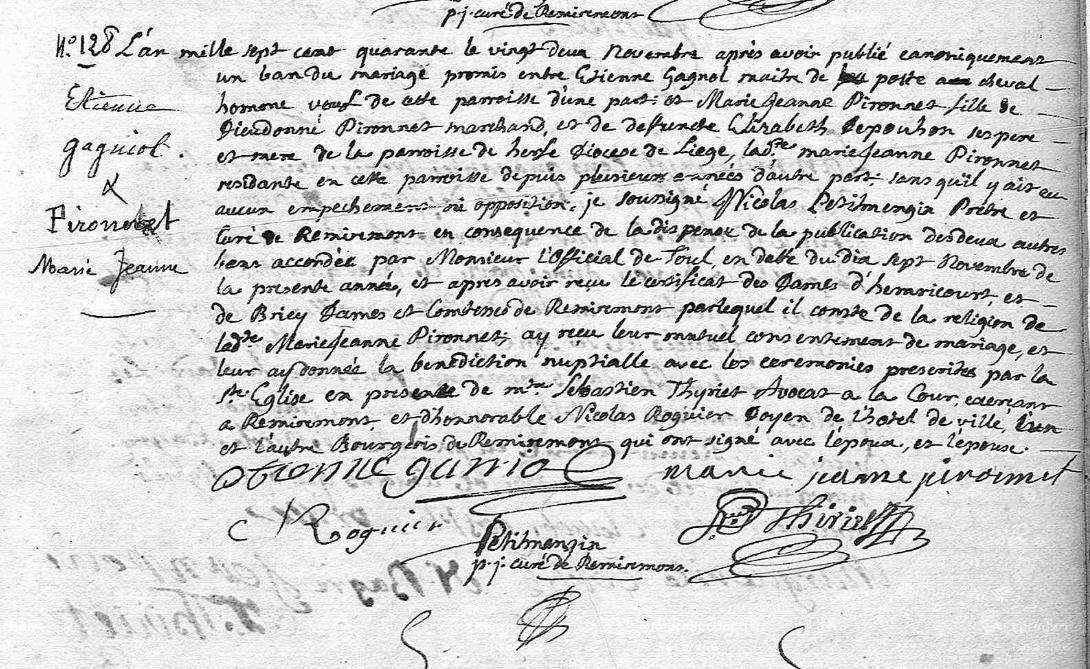 p. j. curé de Remiremont
N.º 128 L'an mille sept cent quarante le vingt deux Novembre après avoir publié canoniquement
un ban du mariage promis entre Etienne Gagnol maitre de poste a cheval
Etienne
homme veuf de cette parroisse d'une part: et Marie Jeanne Pironnet fille de
Dieudonné Pironnet marchand, et de deffuncte Elizabeth Depouhon ses pere
gagniol.
et mere de la parroisse de herse Diocese de Liege, ladte marie Jeanne Pironnet
&
residante en cette parroisse depuis plusieurs années d'autre part; sans qu'il y ait eu
aucun empechement ni opposition; je sousigné Nicolas Petitmengin Pretre et
Pironet
Curé de Remiremont en consequence de la dispense de la publication des deux autres
Marie Jeanne
bans accordée par Monsieur l'Official de Toul, en datte du dix sept Novembre de
la presente année, et apres avoir reçu le certificat des Dames d'hemricourt, et
de Briey Dames et Comtesses de Remiremont par lequel il conste de la religion de
ladte Marie Jeanne Pironnet; ay reçu leur mutuel consentement de mariage, et
leur ay donnée la benediction nuptialle avec les ceremonies prescrites par la
Ste Eglise en presence de mtre Sebastien Thyriet Avocat a la Cour, exerçant
a Remiremont, et d'honorable Nicolas Roguier Doyen de l'hotel de ville, l'un
et l'autre Bourgeois de Remiremont qui ont signé avec l'epoux, et l'epouse.
etienne ganiol marie jeanne pironnet
C Roguier Thiriet
Petitmengin
p. j. curé de Remiremont.